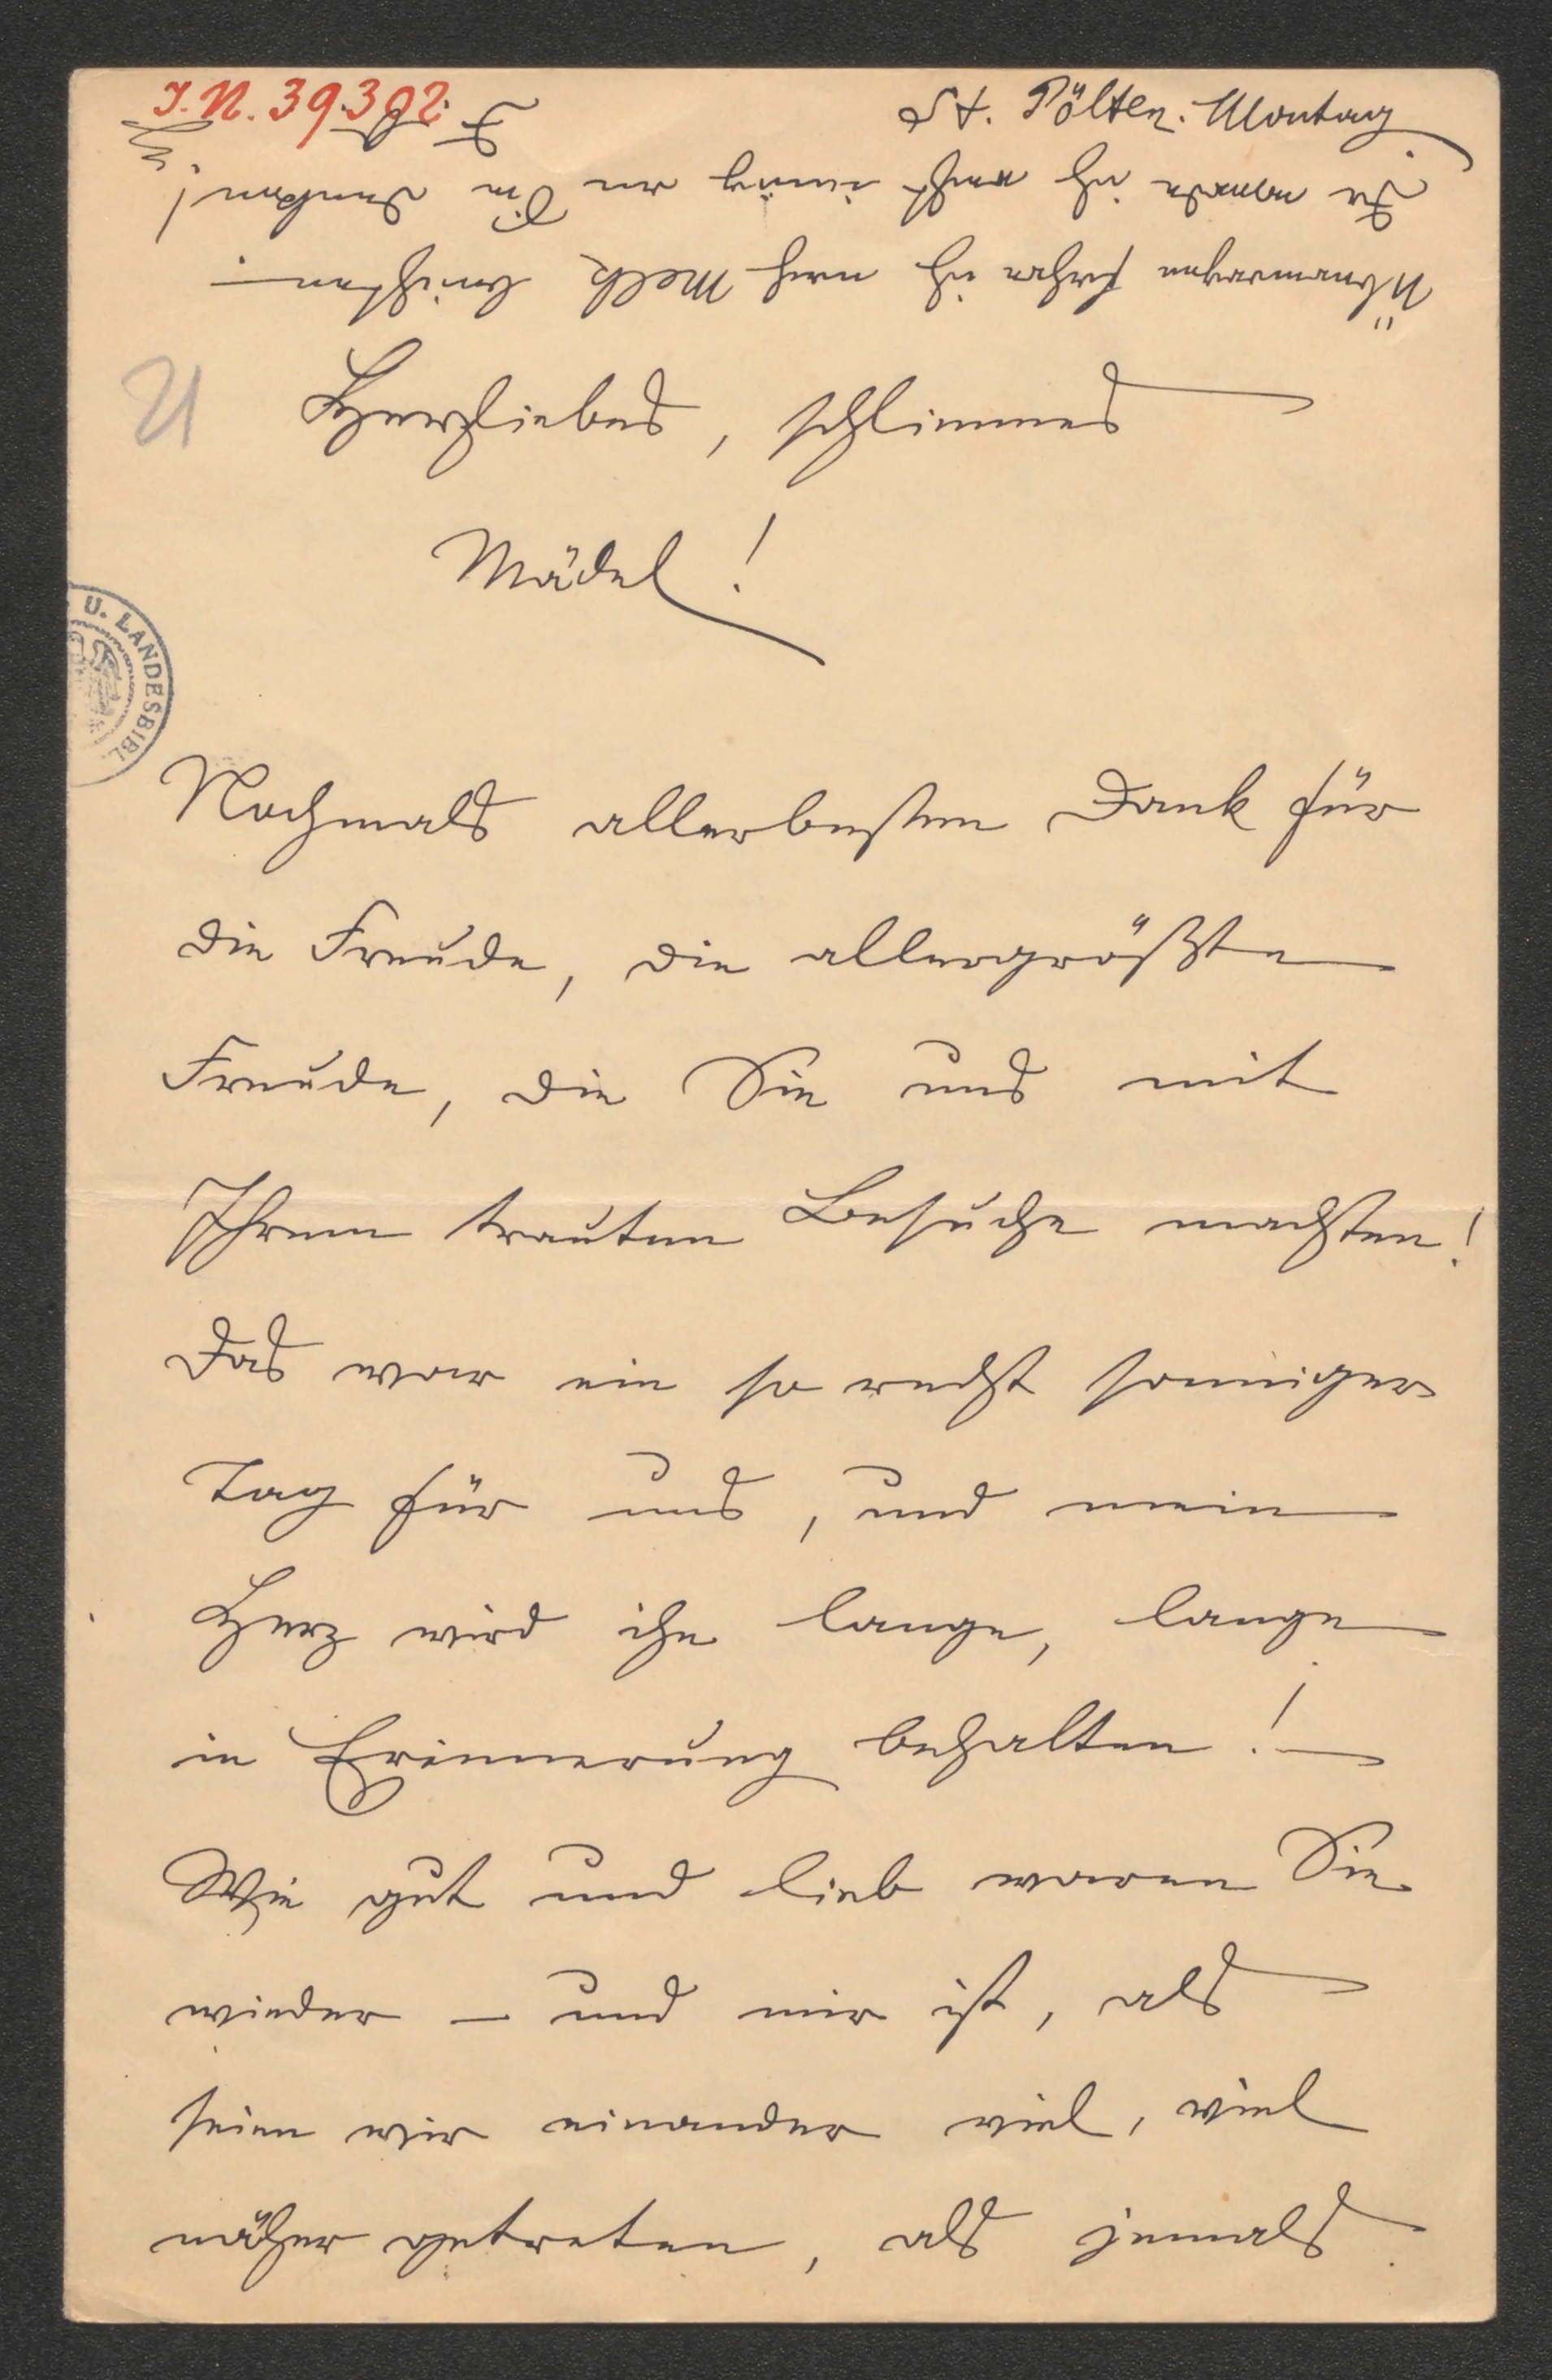 I.N. 39.302
St. Pölten. Montag
Übermorgen fahre ich nach Melk beichten –
Da werde ich recht innig an Sie denken!
Herzliebes, schlimmes
Mädel!
U. LANDESBIBL.
Nochmals allerbesten Dank für
die Freude, die allergrößte
Freude, die Sie uns mit
Ihrem trauten Besuche machten!
Das war ein so recht sonniger
Tag für uns, und mein
Herz wird ihn lange, lange
in Erinnerung behalten! –
Wie gut und lieb waren Sie
wieder – und mir ist, als
seien wir einander viel, viel
näher getreten, als jemals